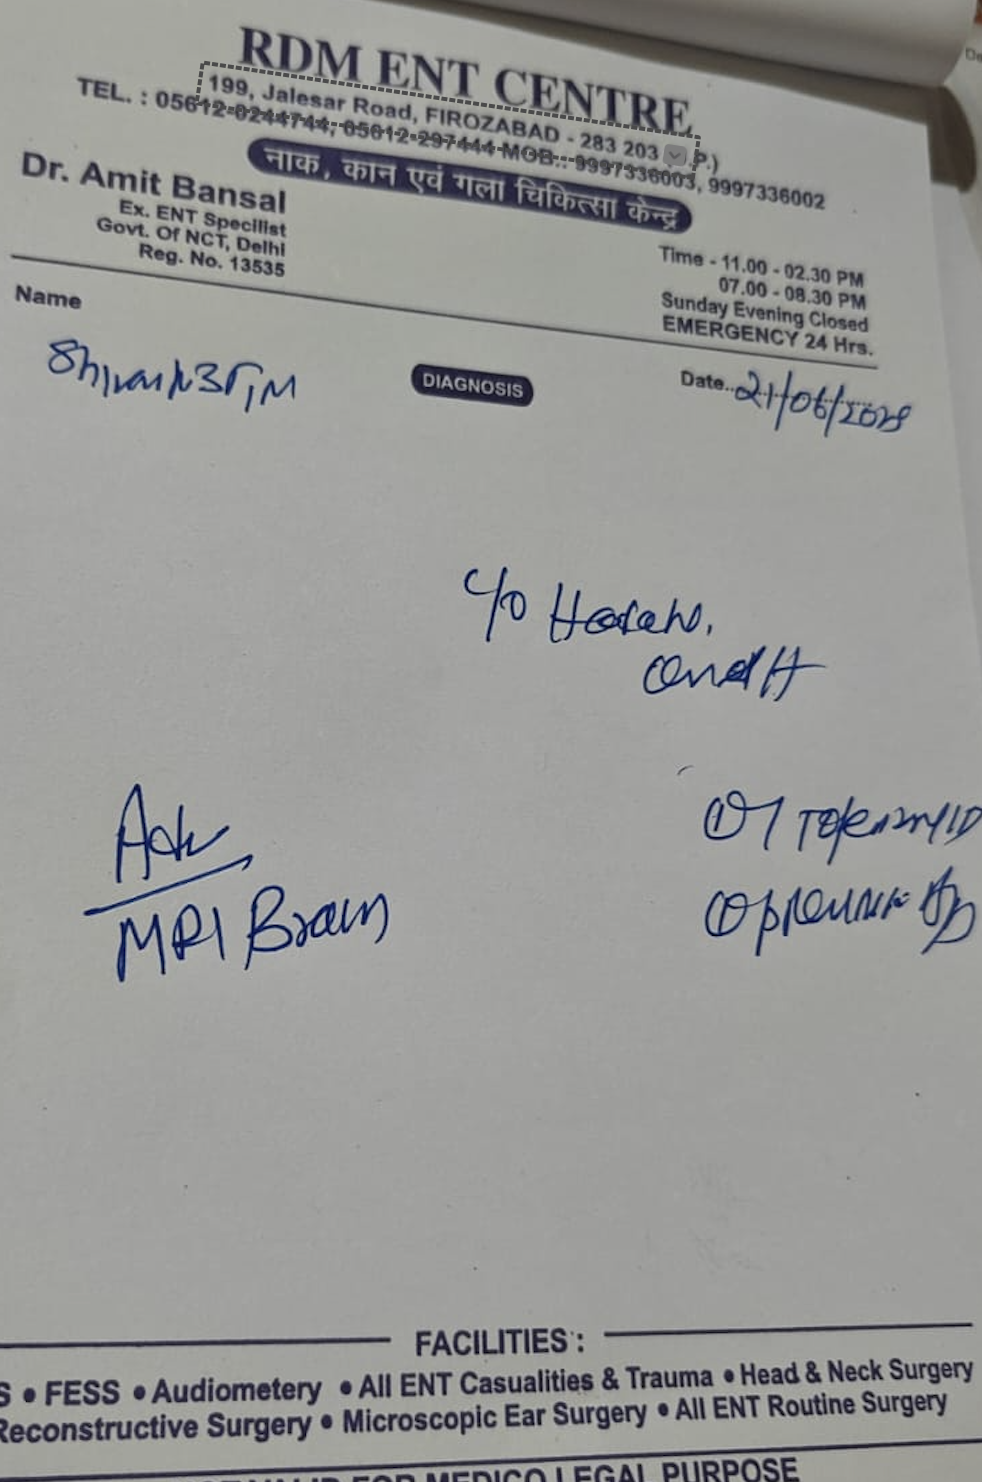 RDM ENT CENTRE
199, Jalesar Road, FIROZABAD - 283 203 .P.)
TEL. : 05612-0244744, 05612-297444 MOB.: 9997336003, 9997336002
नाक, कान एवं गला चिकित्सा केन्द्र
Dr. Amit Bansal
Ex. ENT Specilist
Govt. Of NCT, Delhi
Reg. No. 13535
Time - 11.00 - 02.30 PM
07.00 - 08.30 PM
Sunday Evening Closed
EMERGENCY 24 Hrs.
Name
DIAGNOSIS
Date.. 21/06/
C/O
Adv
MRI Brain
FACILITIES :
S • FESS • Audiometery • All ENT Casualities & Trauma • Head & Neck Surgery
Reconstructive Surgery • Microscopic Ear Surgery • All ENT Routine Surgery
MEDICO LEGAL PURPOSE